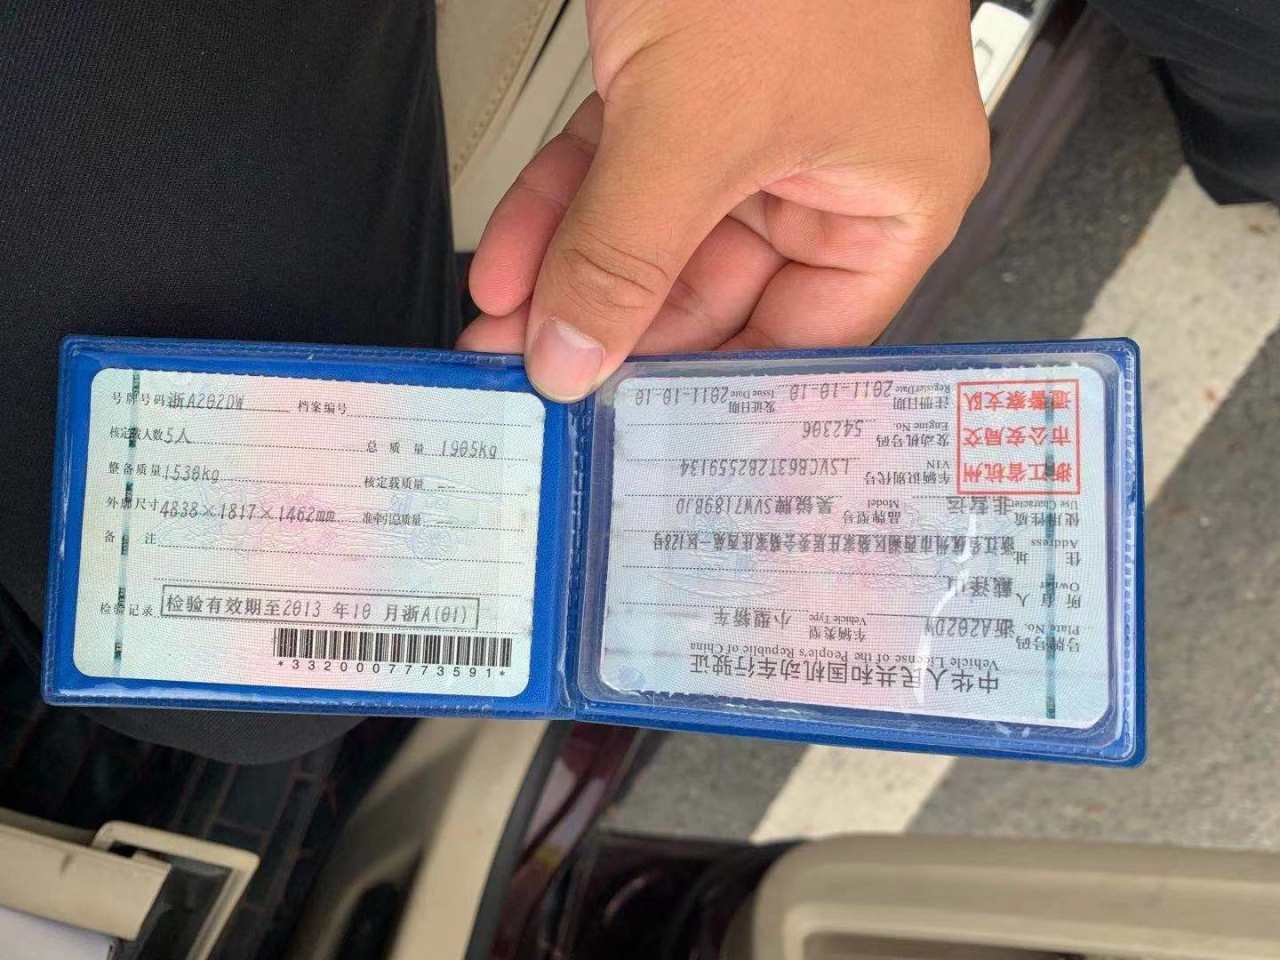 号牌号码 浙A202DW 档案编号
核定载人数 5人 总质量 1905kg
整备质量 1530kg 核定载质量 --
外廓尺寸 4838×1817×1462mm 准牵引总质量 --
备注
检验记录 检验有效期至2013年10月浙A(01)
*3320007773591*
中华人民共和国机动车行驶证
Vehicle License of the People's Republic of China
号牌号码 浙A202DW 车辆类型 小型轿车
Plate No. Vehicle Type
所有人
Owner
住址 浙江省杭州市西湖区
Address
使用性质 非营运 品牌型号 昊锐牌SVW7189BJD
Use Character Model
车辆识别代号 LSVCB63T2B2559134
VIN
发动机号码 542306
Engine No.
注册日期 2011-10-10 发证日期 2011-10-10
Register Date Issue Date
浙江省杭州
市公安局交
通警察支队